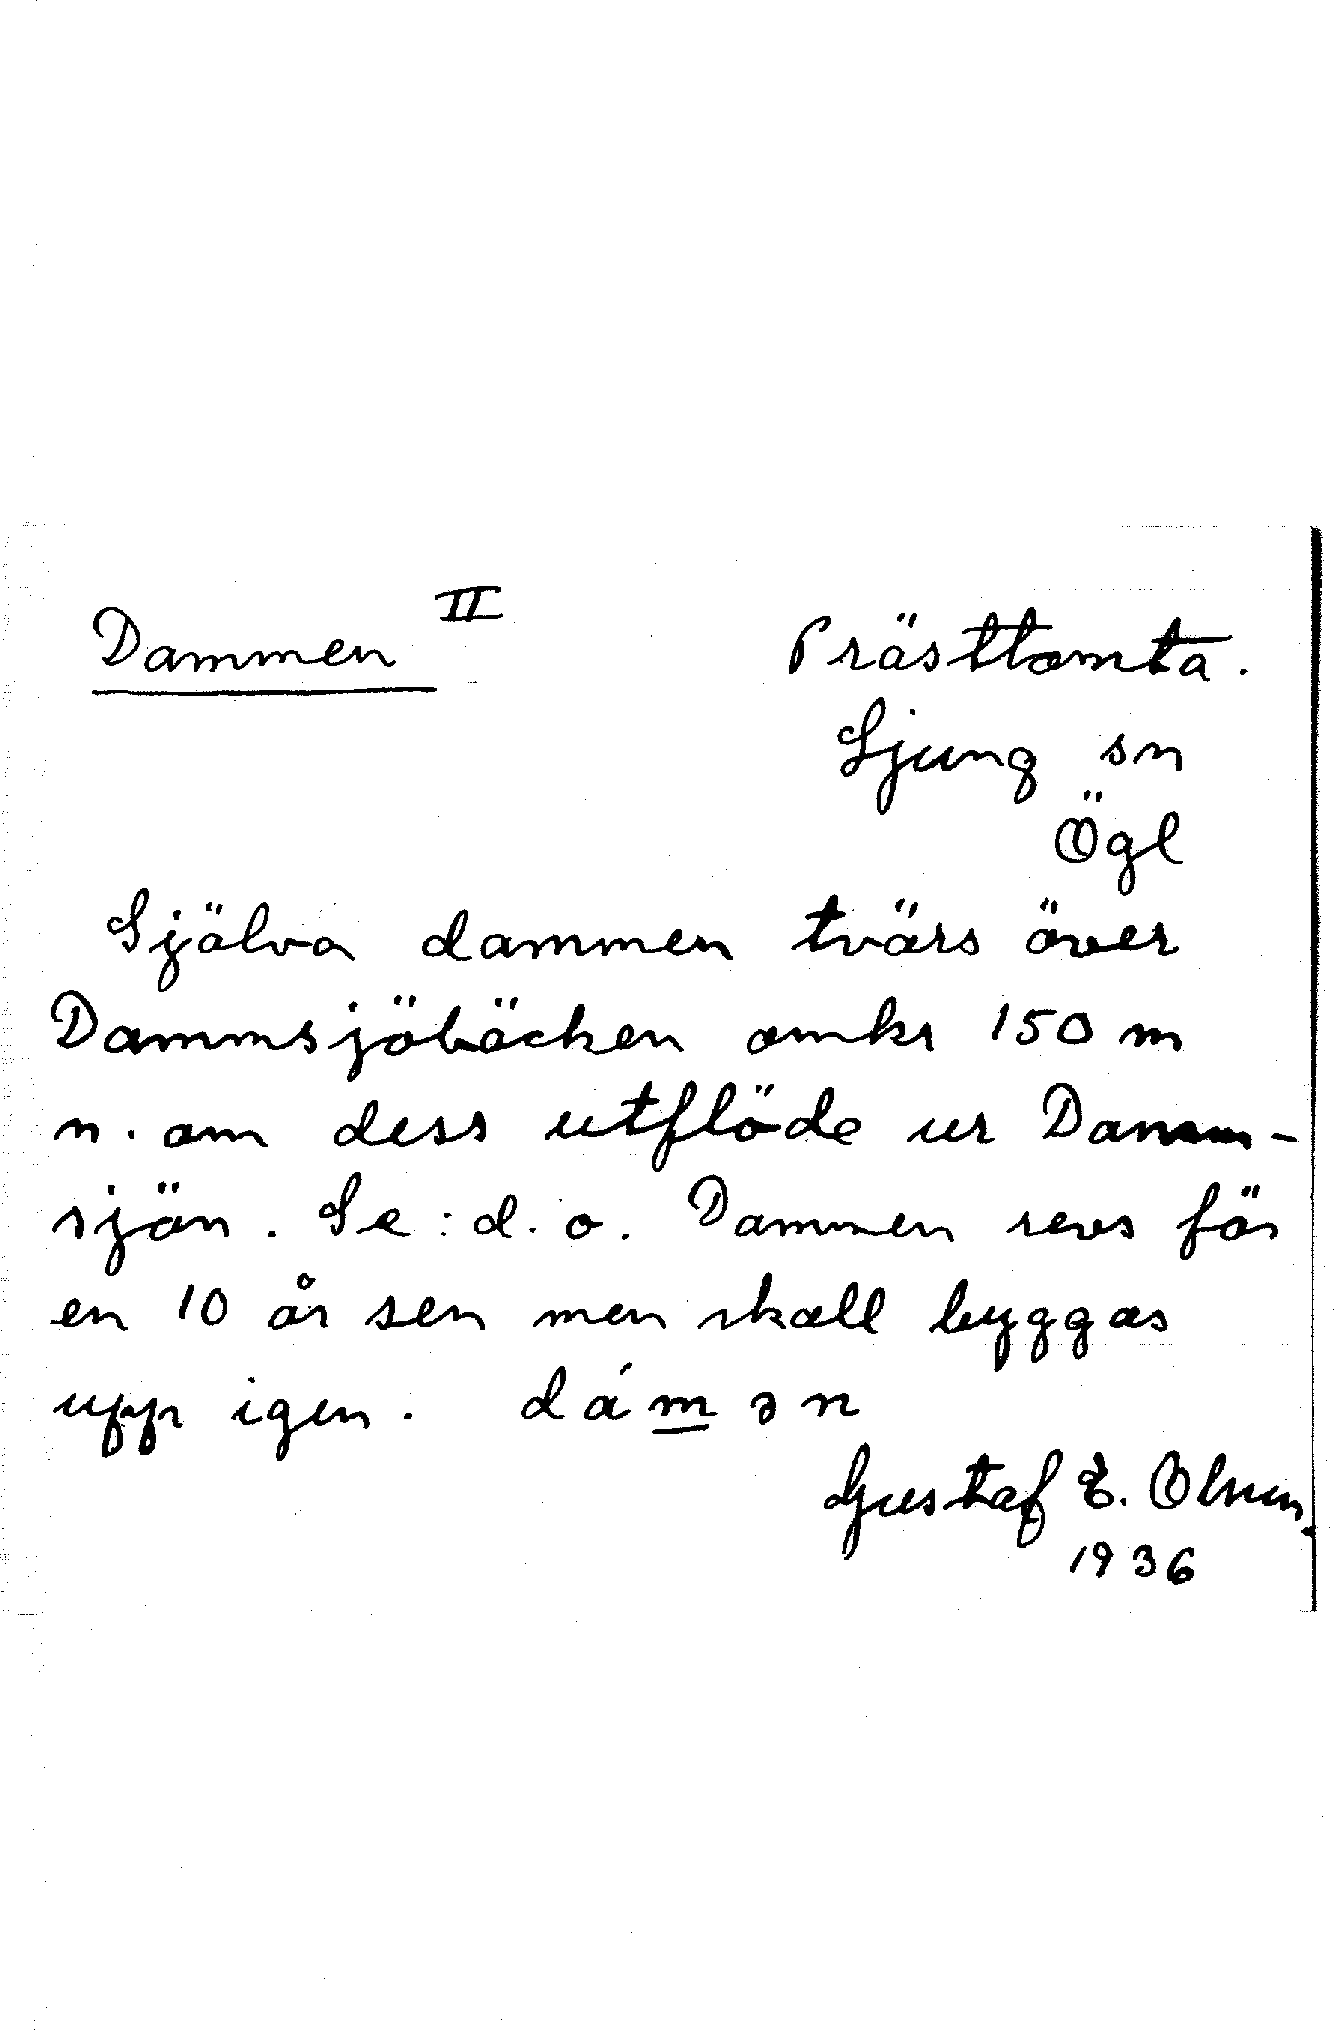 Dammen II
Prästtomta.
Ljung sn
Ögl
Själva dammen tvärs över
Dammsjöbäcken omkr 150 m
n. om dess utflöde ur Damm-
sjön. Se : d. o. Dammen revs för
en 10 år sen men skall byggas
upp igen. dámən
Gustaf E. Olsson.
1936